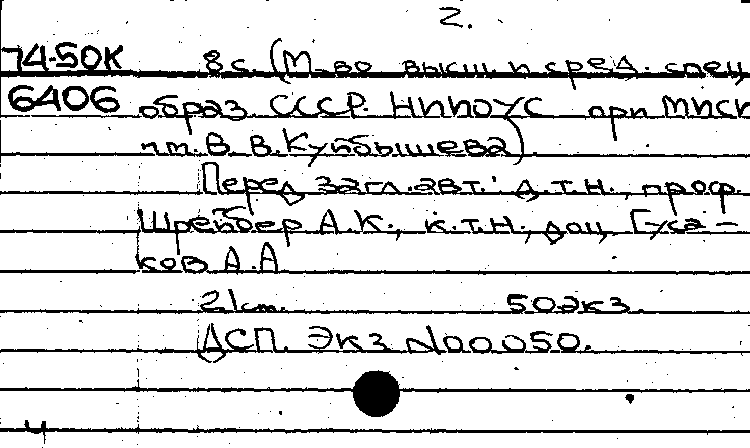 2.
74-50К 8 с. (М-во высш и сред. спец
6406 образ. СССР. НИИОУС при МИСИ
им. В. В. Куйбышева).
Перед загл. авт.: д.т.н., проф.
Шрейбер А.К., к.т.н., доц. Гуса-
ков А.А
21 cm. 50 экз.
ДСП. Экз №00050.
4